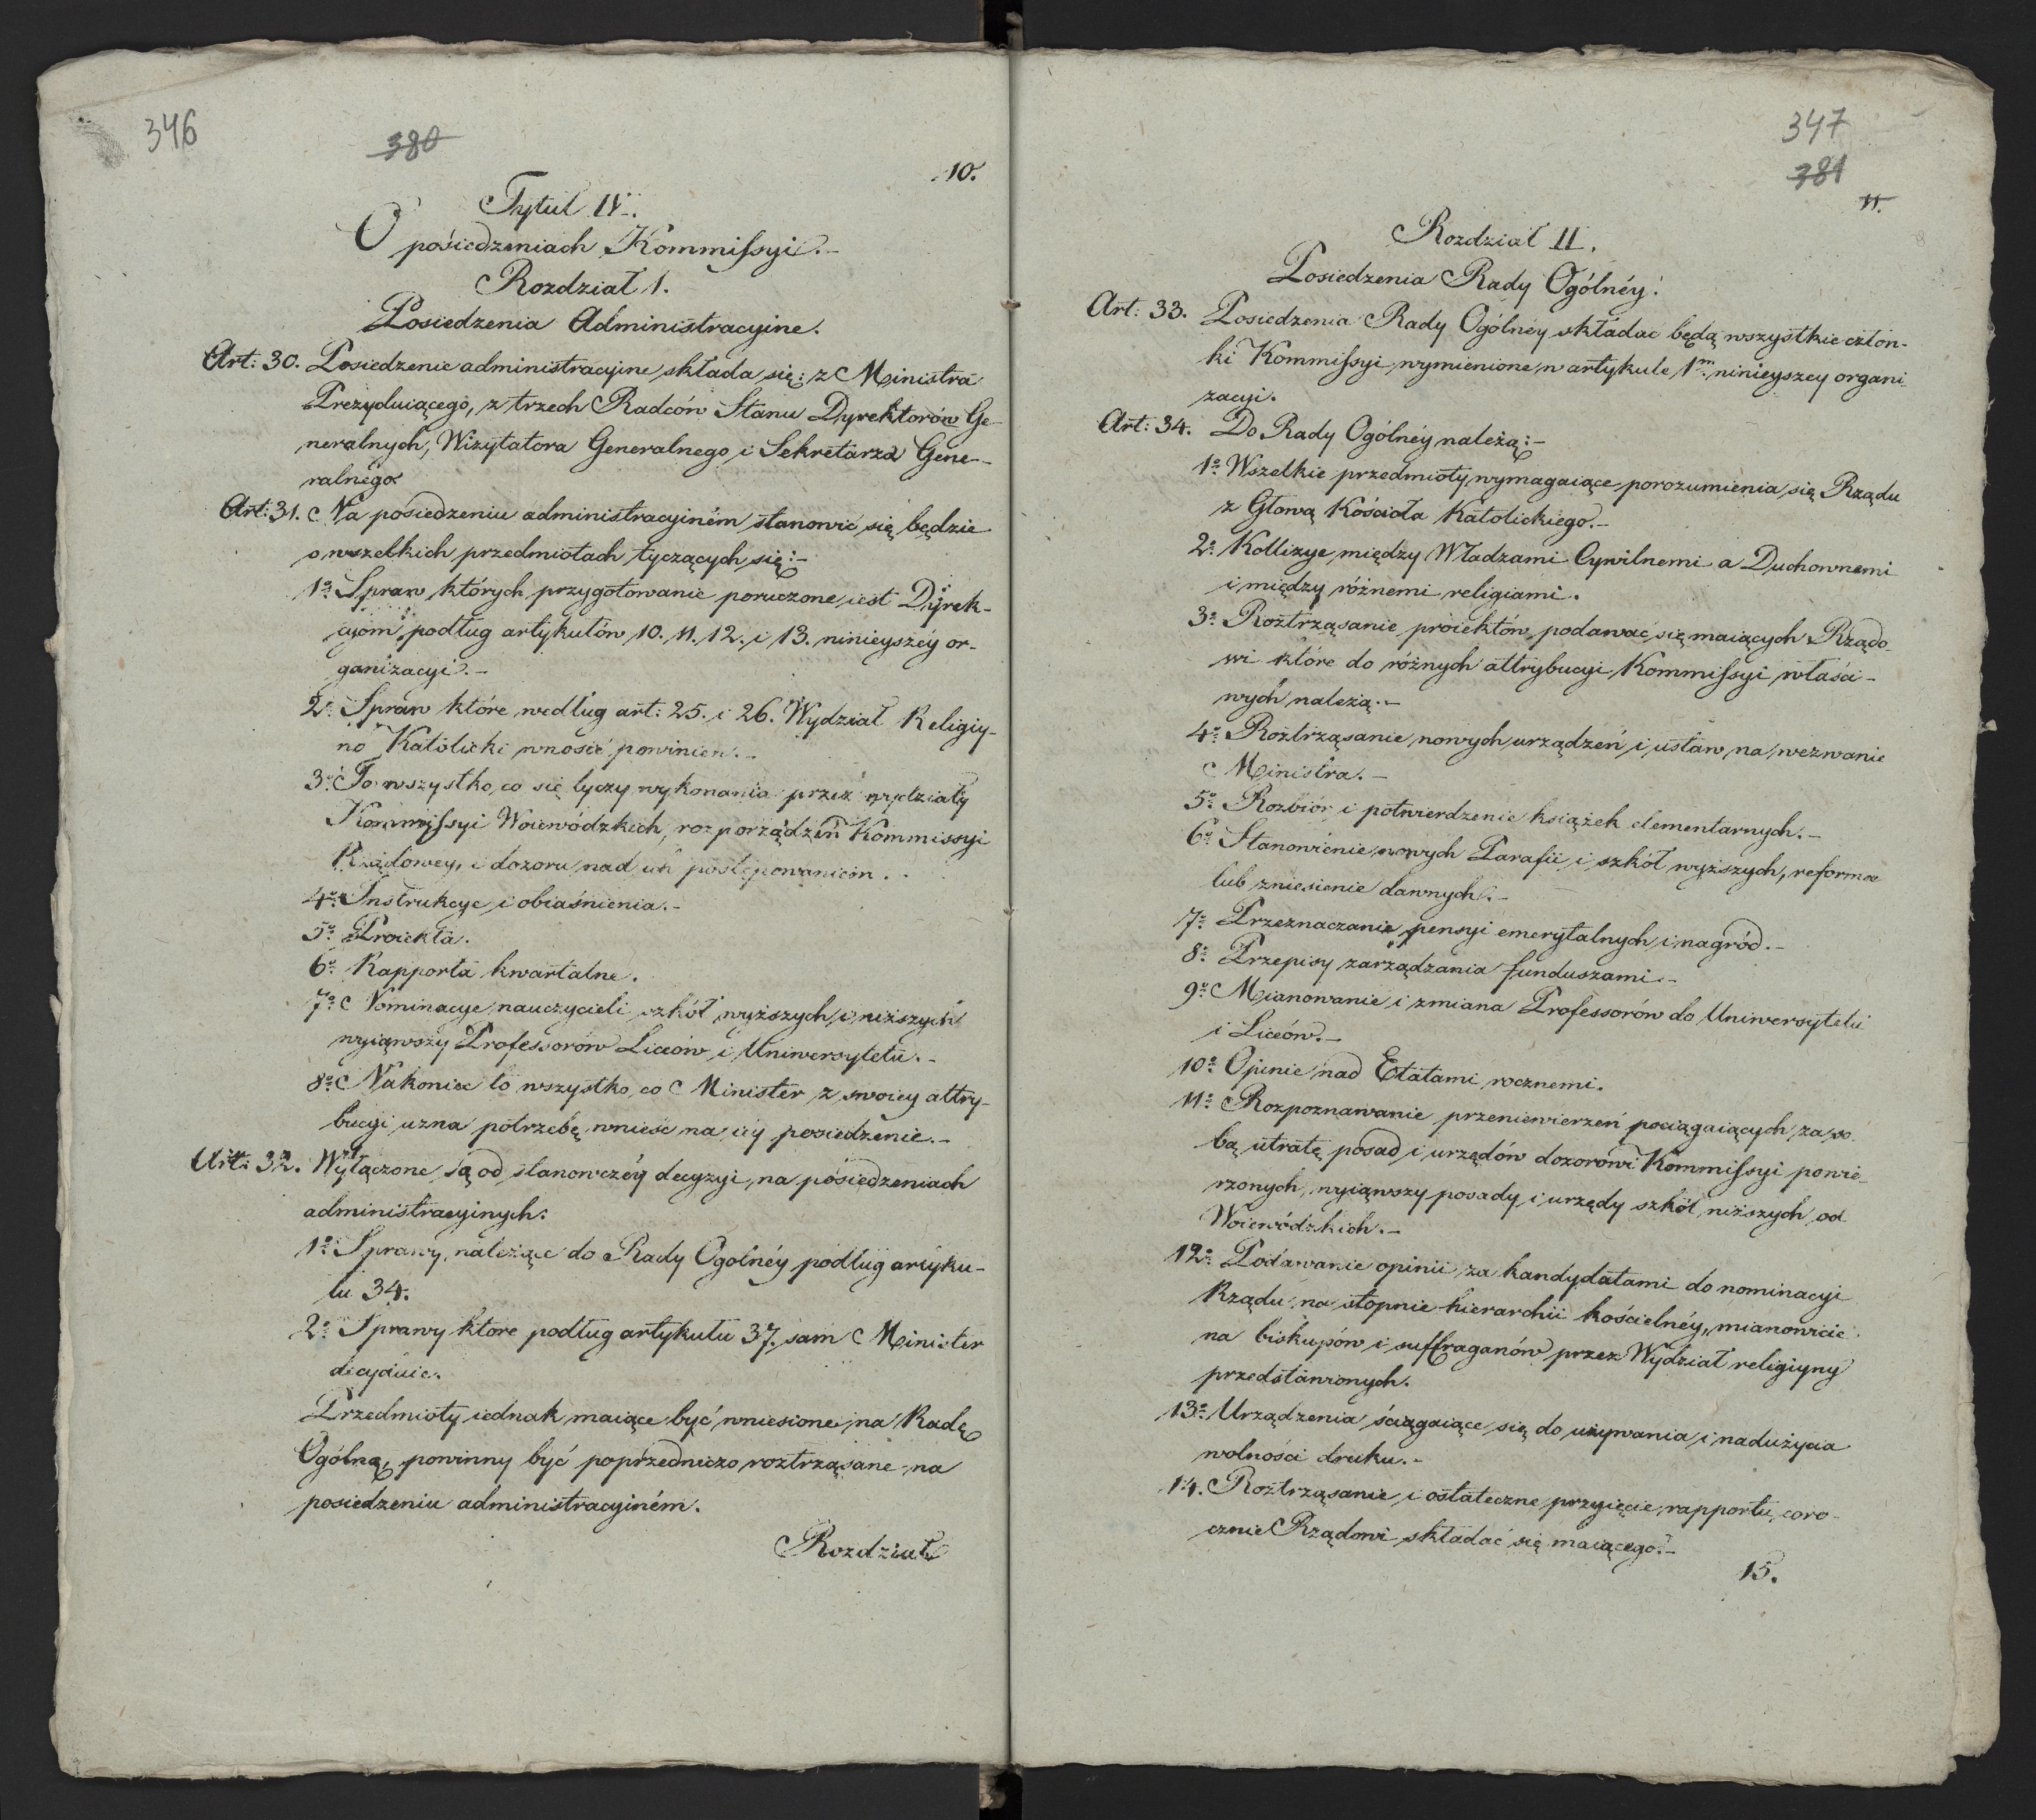 346
380
10.
Tytuł IV.
O posiedzeniach Kommissyi.-
Rozdział 1.
Posiedzenia Administracyine.
Art: 30. Posiedzenie administracyine składa się: z Ministra
Prezyduiącego, z trzech Radców Stanu Dyrektorów Ge-
neralnych, Wizytatora Generalnego i Sekretarza Gene-
ralnego
Art: 31. Na posiedzeniu administracyiném stanowić się będzie
o wszelkich przedmiotach tyczących się:-
1º Spraw których przygotowanie poruczone iest Dyrek-
cyom podług artykułów 10. 11. 12. i 13. ninieyszéy or-
ganizacyi.-
2º Spraw które według art: 25. i 26. Wydział Religiy-
no Katolicki wnosić powinien.-
3º To wszystko, co się tyczy wykonania przez wydziały
Kommissyi Woiewódzkich, rozporządzeń Kommissyi
Rządowey, i dozoru nad ich postępowaniem.
4º Instrukcye i obiaśnienia.-
5º Proiekta.
6º Rapporta kwartalne.
7º Nominacye nauczycieli szkół wyższych i niższych
wyiąwszy Professorów Liceów i Uniwersytetu.-
8º Nakoniec to wszystko, co Minister z swoiey attry-
bucyi uzna potrzebę wnieść na iey posiedzenie.-
Art: 32. Wyłączone są od stanowczéy decyzyi, na posiedzeniach
administracyinych:
1º Sprawy, należące do Rady Ogólnéy podług artyku-
łu 34.
2º Sprawy które podług artykułu 37. sam Minister
decyduie.
Przedmioty iednak maiące być wniesione na Radę
Ogólną, powinny być poprzedniczo roztrząsane na
posiedzeniu administracyiném.
Rozdział
347
381
11.
Rozdział II.
Posiedzenia Rady Ogólnéy.
Art: 33. Posiedzenia Rady Ogólnéy składać będą wszystkie człon-
ki Kommissyi wymienione w artykule 1m ninieyszey organi-
zacyi.
Art: 34. Do Rady Ogólnéy należą:-
1º Wszelkie przedmioty wymagaiące porozumienia się Rządu
z Głową Kościoła Katolickiego.-
2º Kollizye między Władzami Cywilnemi a Duchownemi
i między różnemi religiami.
3º Roztrząsanie proiektów podawać się maiących Rządo-
wi które do różnych attrybucyi Kommissyi właści-
wych należą.-
4º Roztrząsanie nowych urządzeń i ustaw na wezwanie
Ministra.-
5º Rozbiór i potwierdzenie książek elementarnych.-
6º Stanowienie nowych Parafii i szkół wyższych, reforma
lub zniesienie dawnych.-
7º Przeznaczanie pensyi emerytalnych i nagród.-
8º Przepisy zarządzania funduszami.-
9º Mianowanie i zmiana Professorów do Uniwersytetu
i Liceów.-
10º Opinie nad Etatami rocznemi.
11º Rozpoznawanie przeniewierzeń pociągaiących za so-
bą utratę posad i urzędów dozorowi Kommissyi powie-
rzonych, wyiąwszy posady i urzędy szkół niższych od
Woiewódzkich.-
12º Podawanie opinii za kandydatami do nominacyi
Rządu na stopnie hierarchii kościelnéy, mianowicie
na biskupów i suffraganów przez Wydział religiyny
przedstawionych.
13º Urządzenia ściągaiące się do używania i nadużycia
wolności druku.-
14. Roztrząsanie i ostateczne przyięcie rapportu, coro-
cznie Rządowi składać się maiącego.-
15.